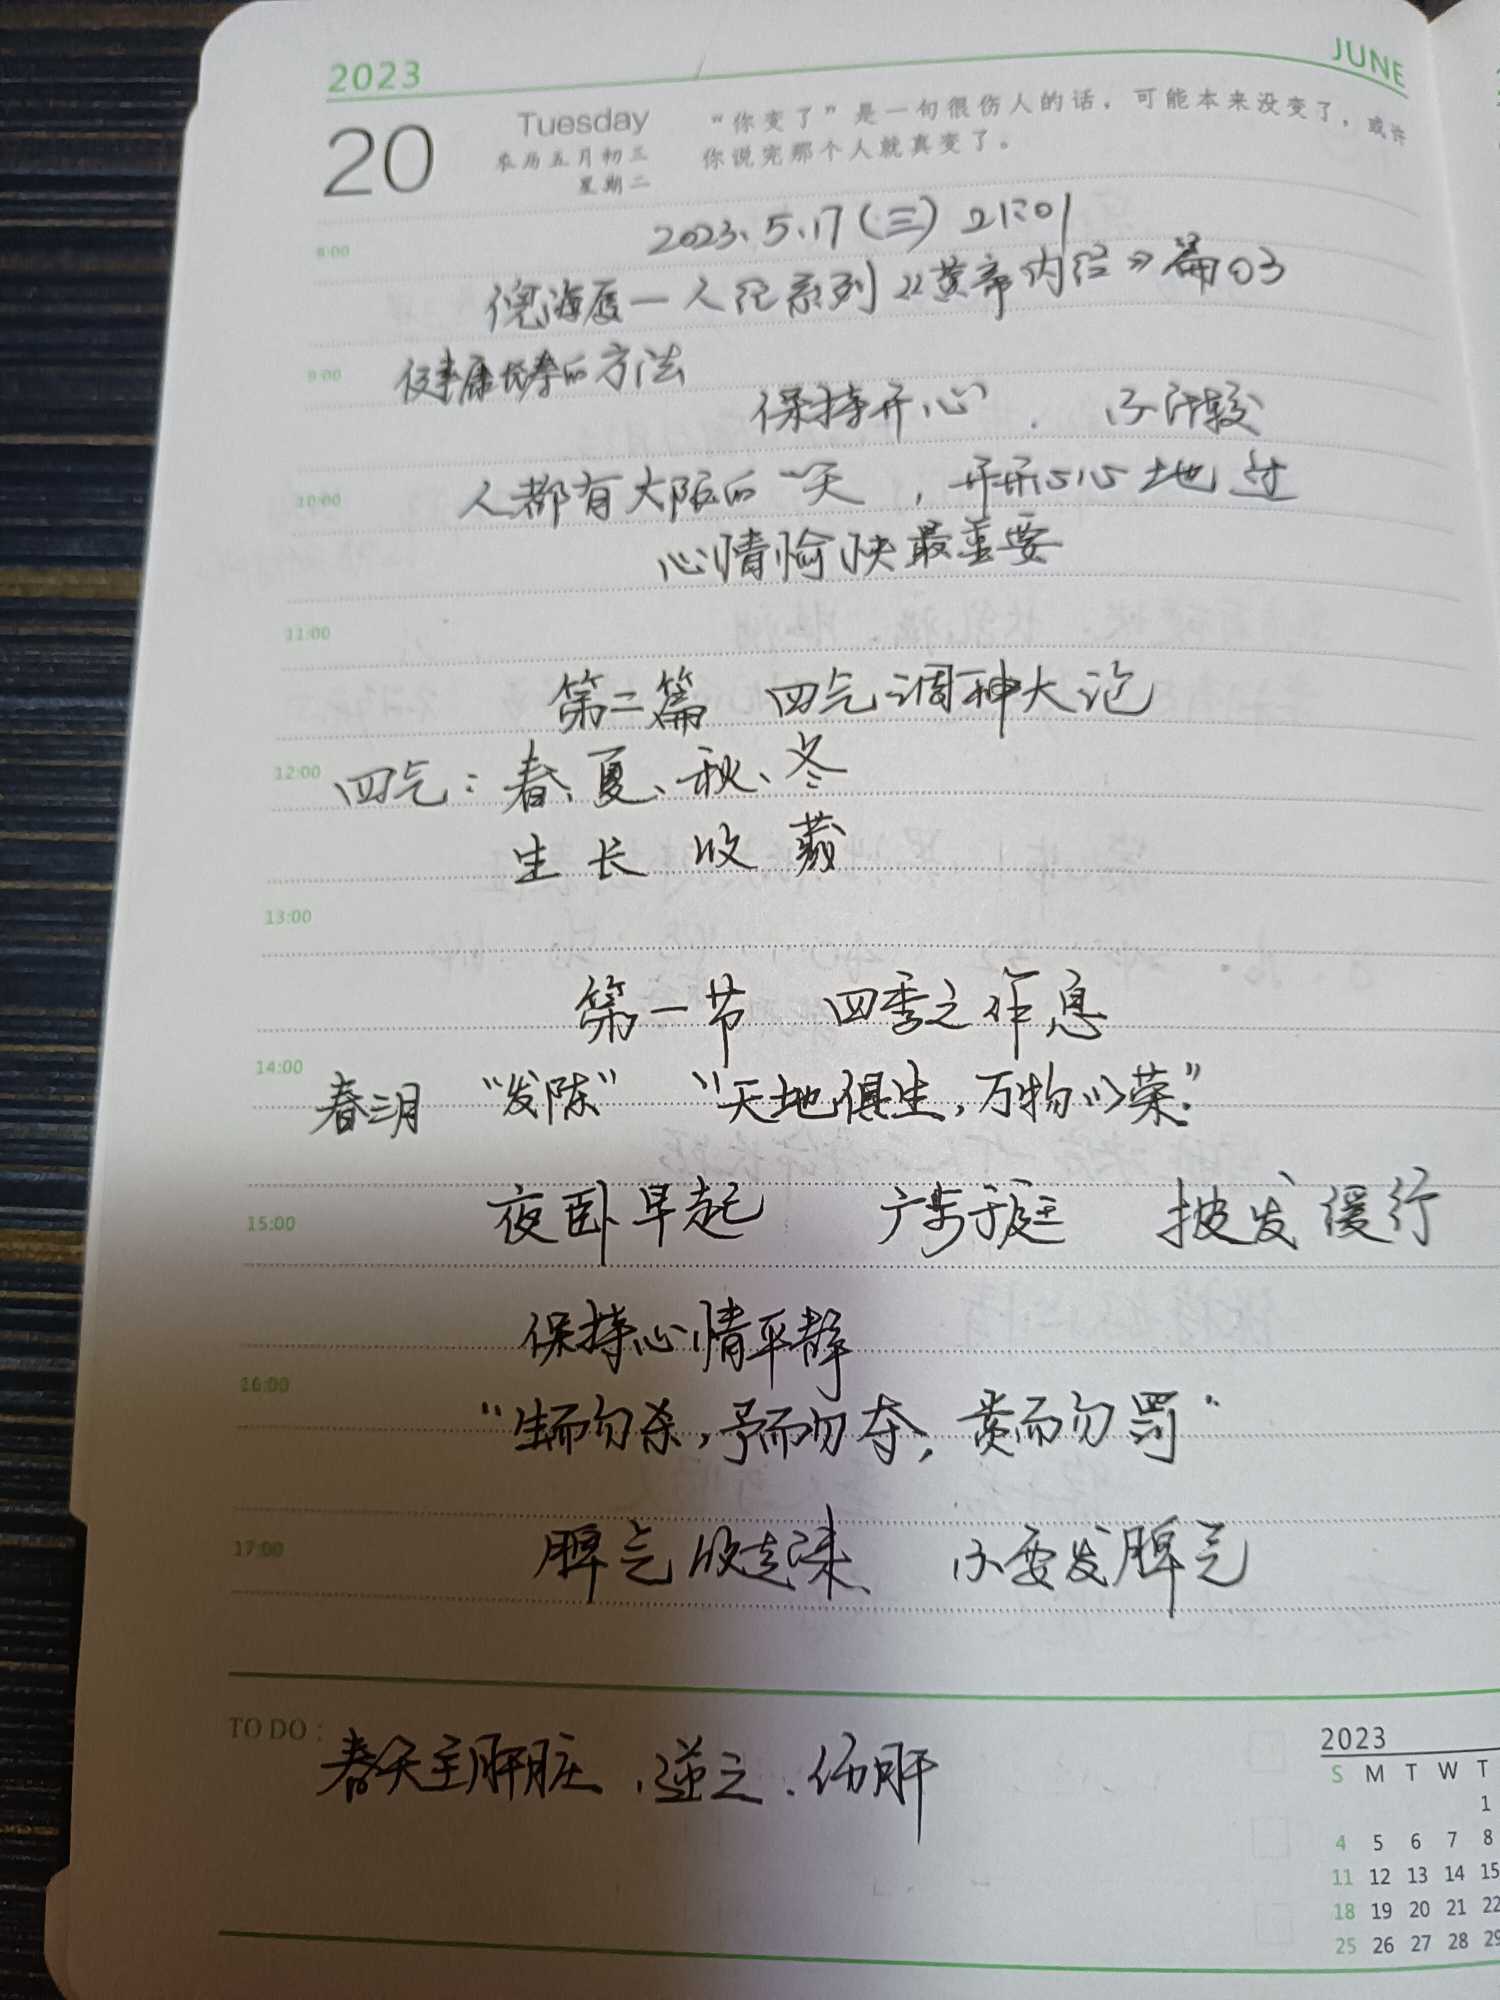 2023
JUNE
20
Tuesday
农历五月初三
星期二
“你变了”是一句很伤人的话，可能本来没变了，或许
你说完那个人就真变了。
2023.5.17(三) 21:01
8:00
倪海厦一人纪系列《黄帝内经》篇03
9:00
健康长寿的方法
保持开心，不计较
10:00
人都有大限的一天，开开心心地过
心情愉快最重要
11:00
第二篇 四气调神大论
12:00
四气：春、夏、秋、冬
生 长 收 藏
13:00
第一节 四季之作息
14:00
春三月 “发陈” “天地俱生，万物以荣”
15:00
夜卧早起 广步于庭 披发缓行
保持心情平静
16:00
“生而勿杀，予而勿夺，赏而勿罚”
17:00
脾气收起来、不要发脾气
TO DO：
春天主肝脏，逆之，伤肝
2023
S M T W T
1
4 5 6 7 8
11 12 13 14 15
18 19 20 21 22
25 26 27 28 29